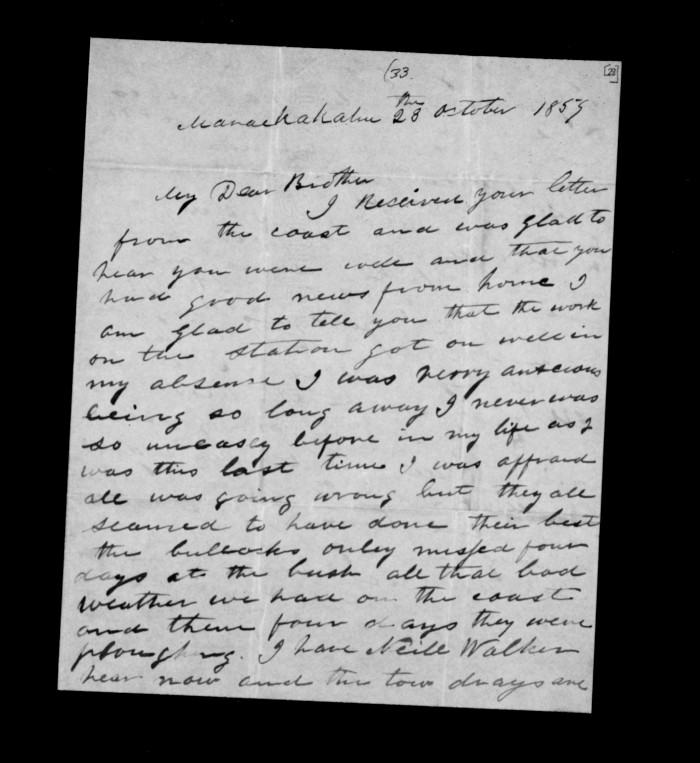 (33.
[23]
the
28 October 1859
My Dear Brother
I Received your letter
from the coast and was glad to
hear you were well and that you
had good news from home I
am glad to tell you that the work
on the station got on well in
my absense I was verry anxcious
being so long away I never was
so uneassy before in my life as I
was this last time I was affraid
all was going wrong but they all
seamed to have done their best
the bullocks onley missed four
days at the bush all that bad
weather we had on the coast
and them four days they were
ploughing. I have Neill Walker
hear now and the tow drays are